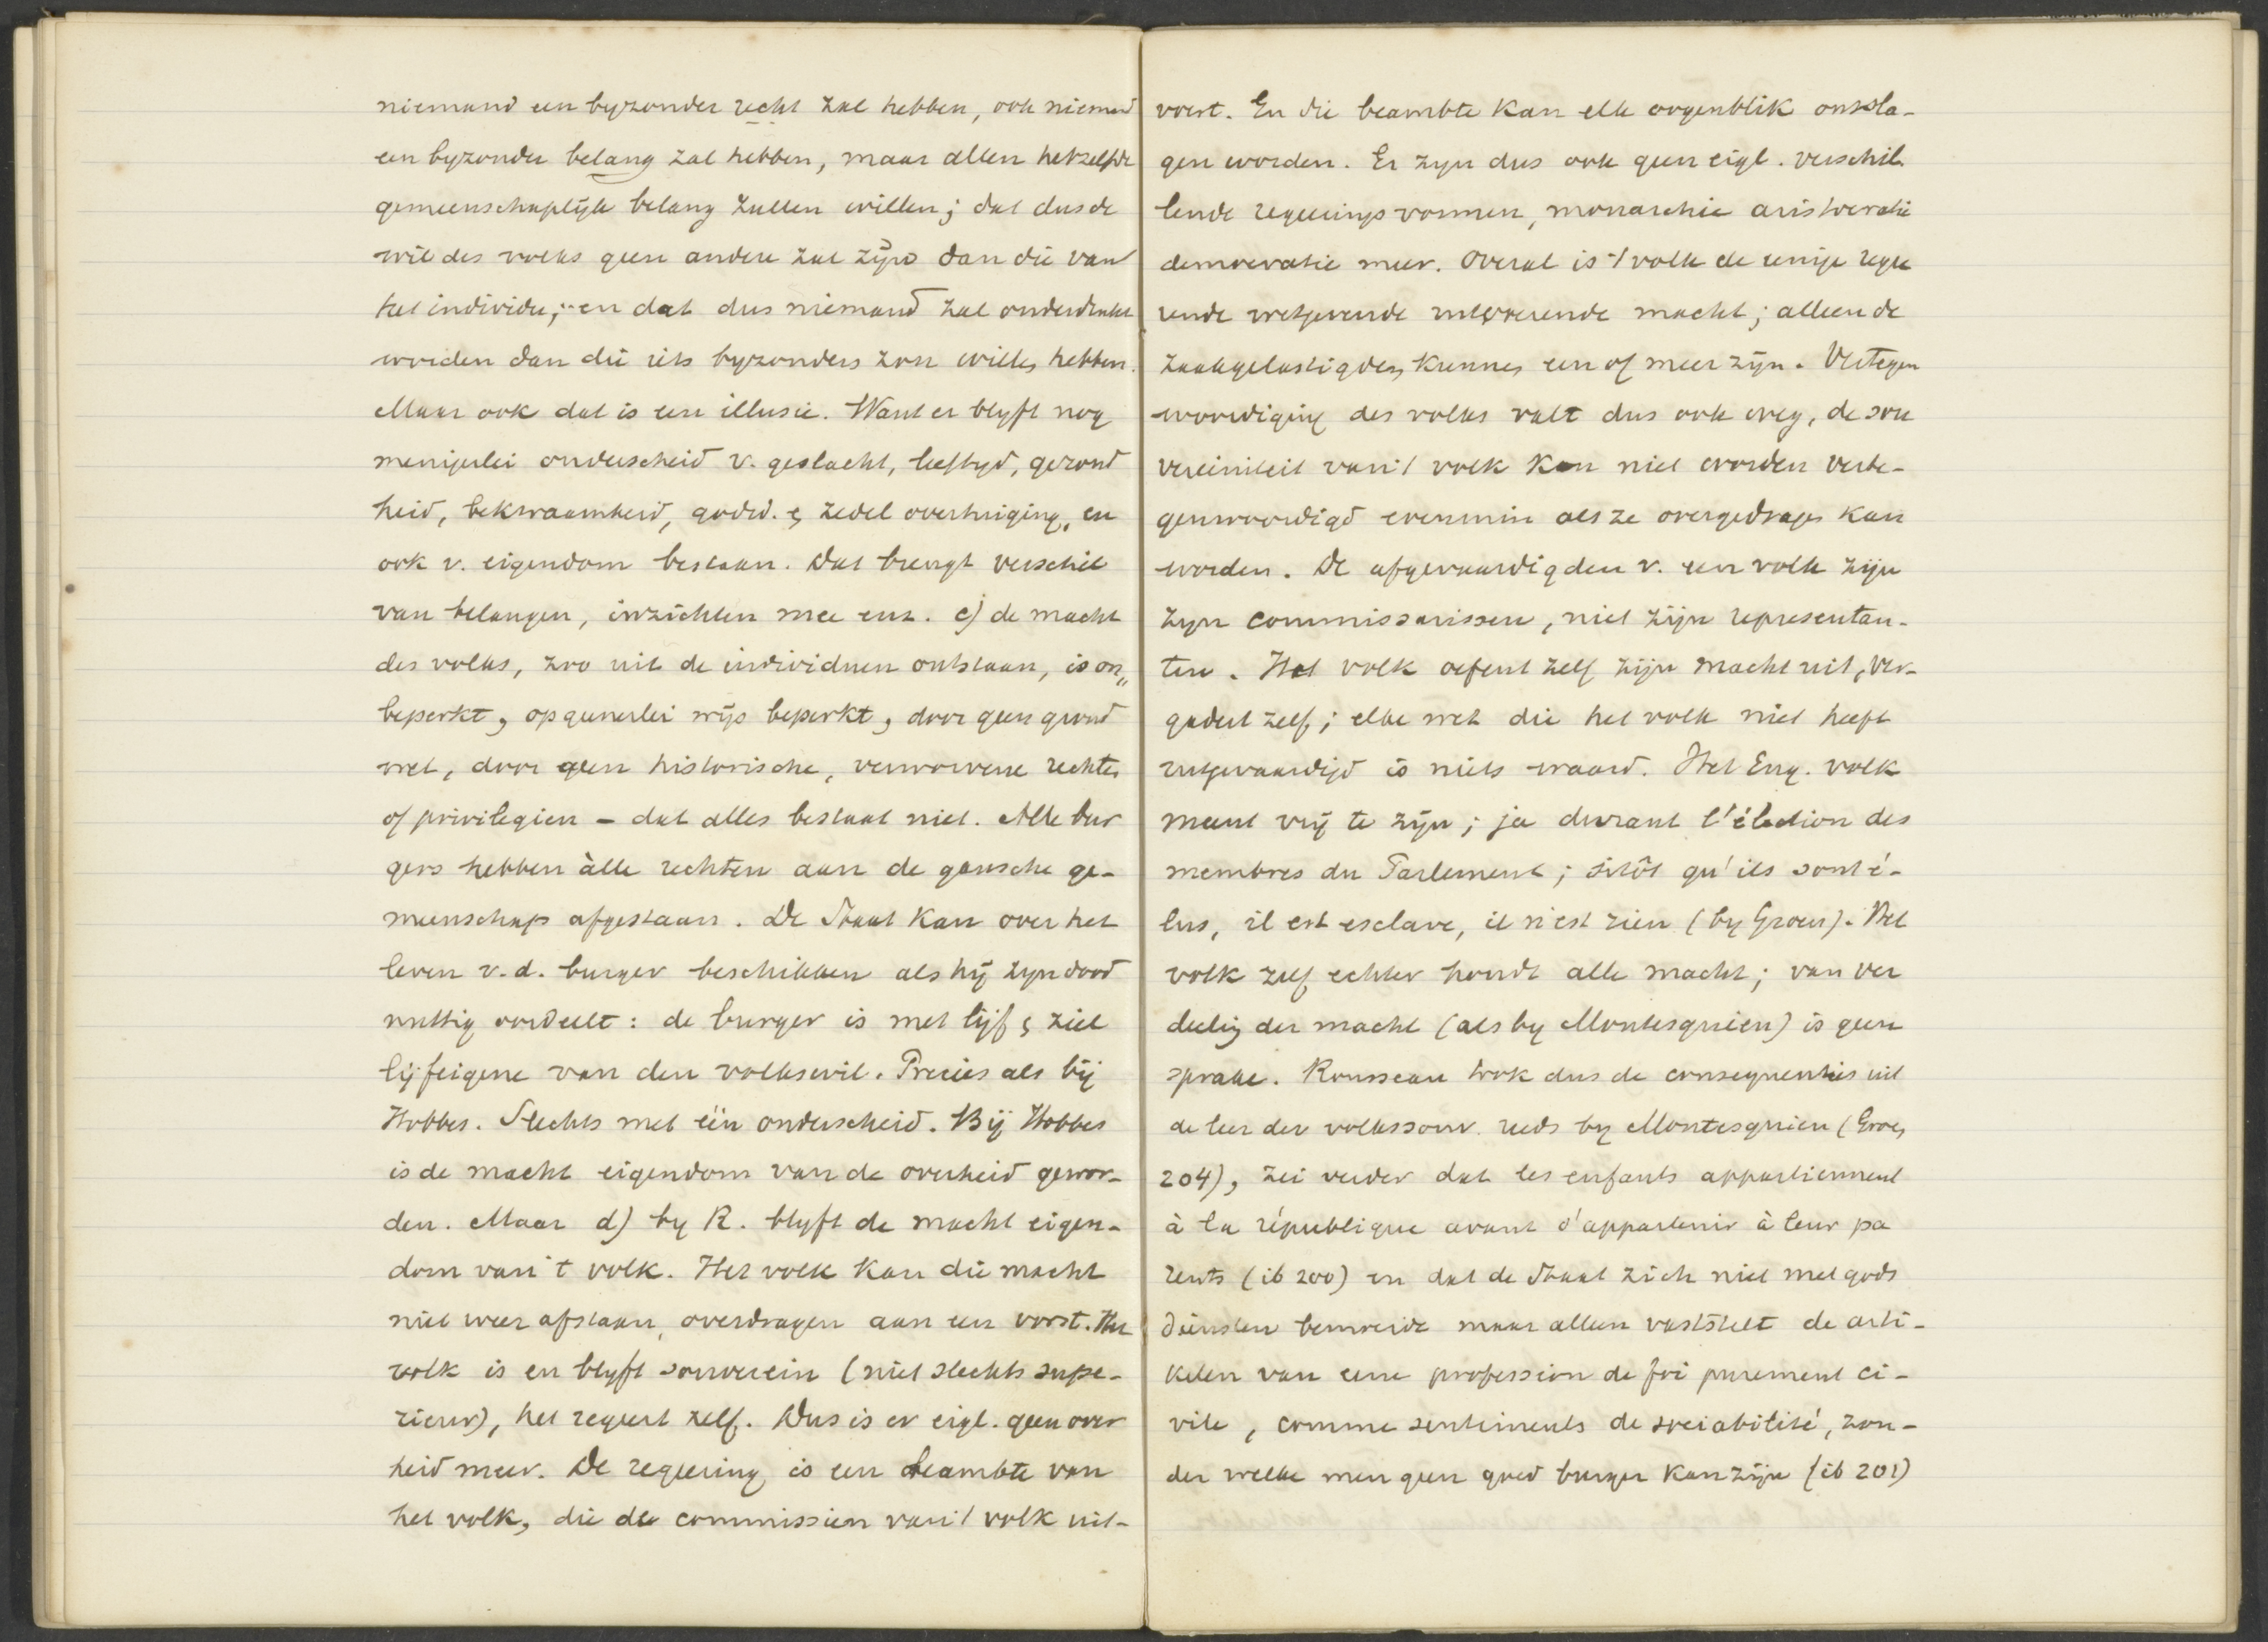 niemand een byzonder recht zal hebben, ook niemand
een byzonder belang zal hebben, maar allen hetzelfde
gemeenschaplijk belang zullen willen; dat dus de
wil des volks geen andere zal zijn dan die van
het individu; en dat dus niemand zal onderdrukt
worden dan die iets byzonders zou willen hebben.
Maar ook dat is een illusie. Want er blyft nog
menigerlei onderscheid v. geslacht, leeftyd, gezond
heid, bekwaamheid, godsd. & zedel overtuiging, en
ook v. eigendom bestaan. Dat brengt verschil
van belangen, inzichten mee enz. c) de macht
des volks, zoo uit de individuen ontstaan, is on„
beperkt, op generlei wijs beperkt, door geen grond
wet, door geen historische, verworvene rechten
of privilegien – dat alles bestaat niet. Alle bur
gers hebben àlle rechten aan de gansche ge-
meenschap afgestaan. De Staat kan over het
leven v.d. burger beschikken als hij zyn dood
nuttig oordeelt: de burger is met lijf & ziel
lijfeigene van den volkswil. Precies als bij
Hobbes. Slechts met één onderscheid. Bij Hobbes
is de macht eigendom van de overheid gewor-
den. Maar d) by R. blyft de macht eigen-
dom van 't volk. Het volk kan die macht
niet weer afstaan, overdragen aan een vorst. Het
volk is en blyft souverein (niet slechts supe-
rieur), het regeert zelf. Dus is er eigl. geen over
heid meer. De regeering is een beambte van
het volk, die de commissien van 't volk uit-
voert. En die beambte kan elk oogenblik ontsla-
gen worden. Er zyn dus ook geen eigl. verschil
lende regeeringsvormen, monarchie aristocratie
democratie meer. Overal is 't volk de eenige rege
rende wetgevende uitvoerende macht; alleen de
zaakgelastigden kunnen een of meer zijn. Vertegen
woordiging des volks valt dus ook weg, de sou
vereiniteit van 't volk kan niet worden verte-
genwoordigd evenmin als ze overgedragen kan
worden. De afgevaardigden v. een volk zijn
zyn commissarissen, niet zijn representan-
ten. Het volk oefent zelf zijn macht uit, ver-
gadert zelf; elke wet die het volk niet heeft
uitgevaardigd is niets waard. Het Eng. volk
meent vrij te zijn; ja durant l'élection des
membres du Parlement; sitôt qu'ils sont é-
lus, il est esclave, il n'est rien (by Groen). Het
volk zelf echter houdt alle macht; van ver
deeling der macht (als by Montesquieu) is geen
sprake. Rousseau trok dus de consequenties uit
de leer der volkssouv. reeds by Montesquieu (Groen
204), zei verder dat les enfants appartiennent
à la république avant d'appartenir à leur pa
rents (ib 200) en dat de Staat zich niet met gods
diensten bemoeide maar alleen vaststelt de arti-
kelen van eene profession de foi purement ci-
vile, comme sentiments de sociabilité, zon-
der welke men geen goed burger kan zijn (ib 201)